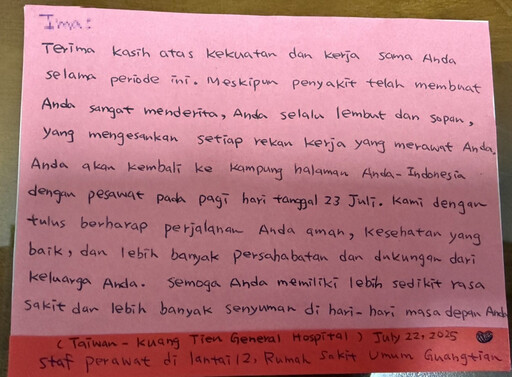 Ima:
Terima kasih atas kekuatan dan kerja sama Anda
selama periode ini. Meskipun penyakit telah membuat
Anda sangat menderita, Anda selalu lembut dan sopan,
yang mengesankan setiap rekan kerja yang merawat Anda.
Anda akan kembali ke kampung halaman Anda-Indonesia
dengan pesawat pada pagi hari tanggal 23 Juli. Kami dengan
tulus berharap perjalanan Anda aman, kesehatan yang
baik, dan lebih banyak persahabatan dan dukungan dari
keluarga Anda. Semoga Anda memiliki lebih sedikit rasa
sakit dan lebih banyak senyuman di hari-hari masa depan Anda
(Taiwan - Kuang Tien General Hospital) July 22, 2025
Staf perawat di lantai 12, Rumah Sakit Umum Guangtian